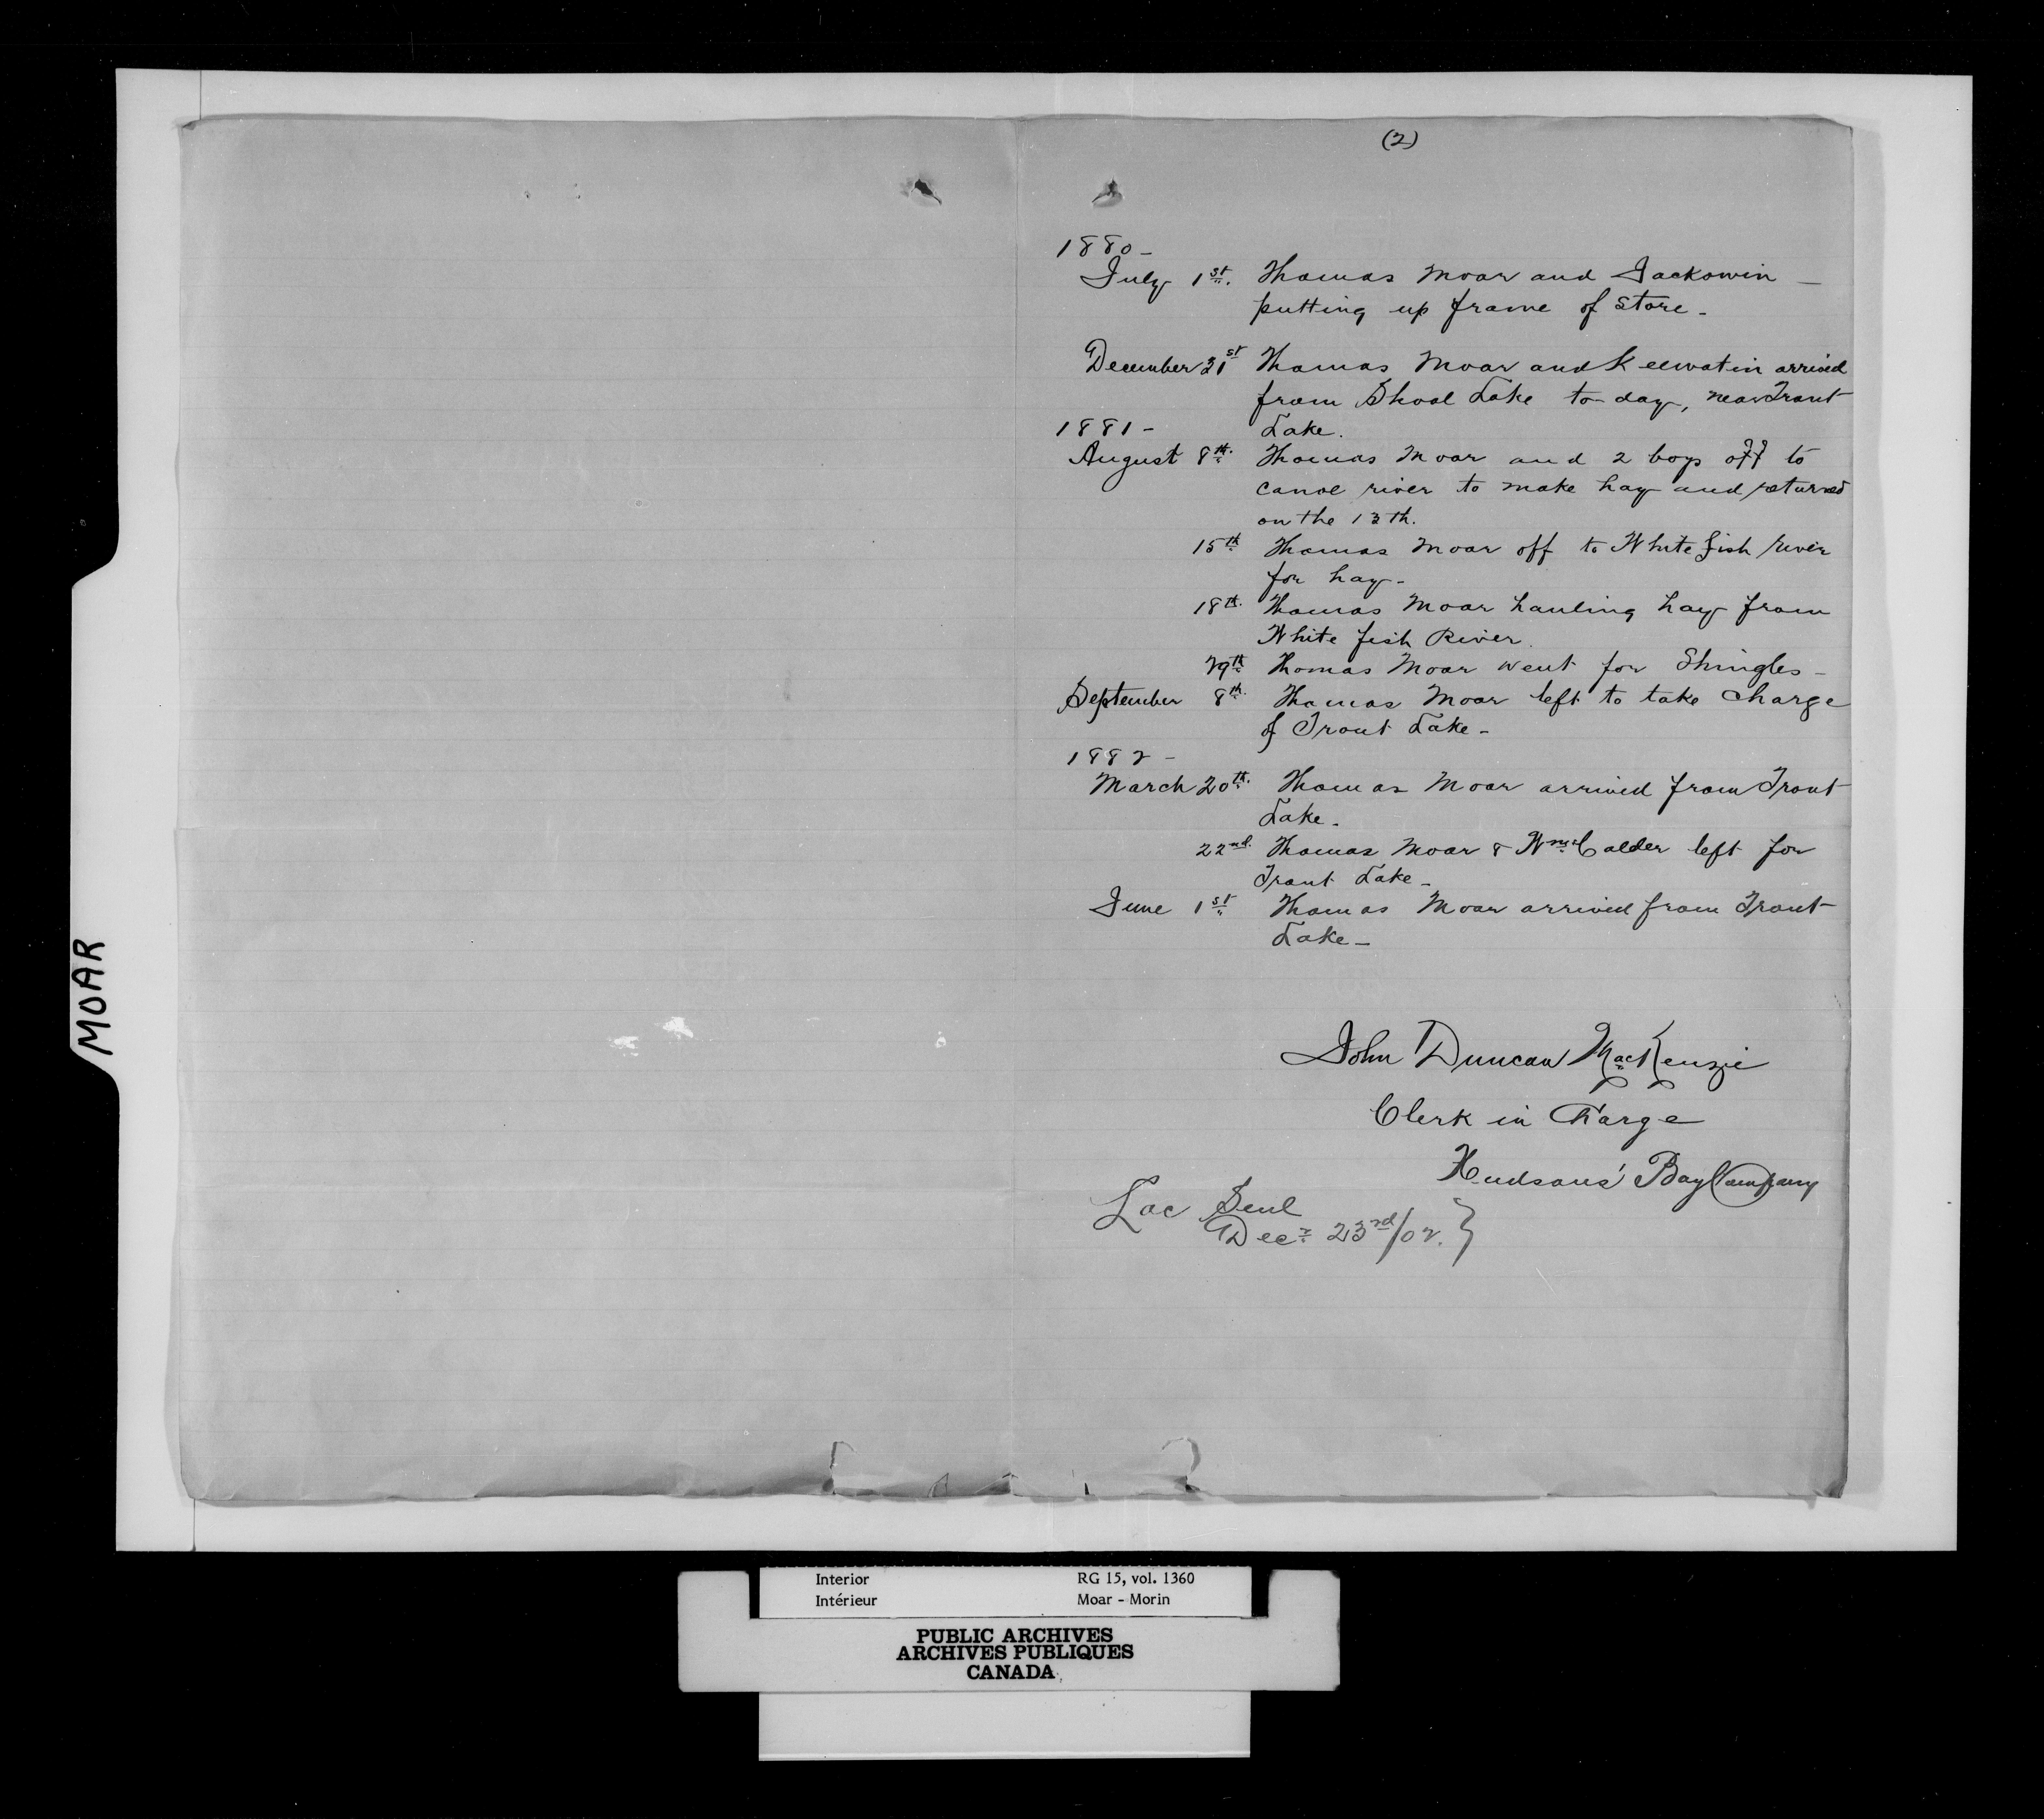 (2)
1880 -
July 1st. Thomas Moar and Jackowin -
putting up frame of store -
December 31st Thomas Moar and Keewatin arrived
from Shoal Lake to-day, near Trout
1881 - Lake.
August 8th. Thomas Moar and 2 boys off to
canoe river to make hay and returned
on the 13th.
15th Thomas Moar off to White fish river
for hay -
18th. Thomas Moar hauling hay from
White fish River.
29th Thomas Moar went for Shingles -
September 8th. Thomas Moar left to take charge
of Trout Lake -
1882 -
March 20th. Thomas Moar arrived from Trout
Lake -
22nd. Thomas Moar & Wm Calder left for
Trout Lake -
June 1st Thomas Moar arrived from Trout
Lake -
John Duncan MacKenzie
Clerk in Charge
Hudsons' Bay Company
Lac Seul
Decr 23rd/02. }
MOAR
Interior RG 15, vol. 1360
Intérieur Moar - Morin
PUBLIC ARCHIVES
ARCHIVES PUBLIQUES
CANADA